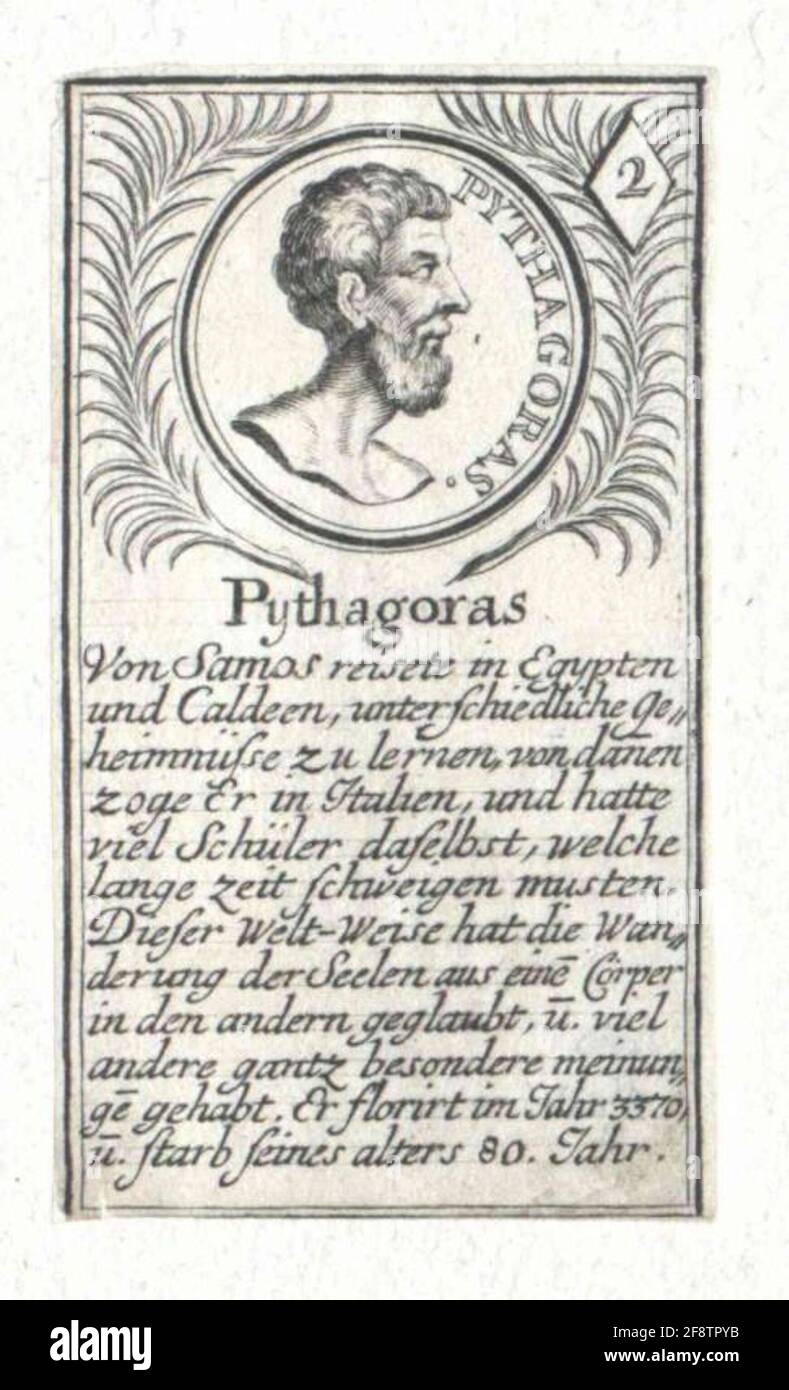 2
PYTHAGORAS.
Pythagoras
Von Samos reisete in Egypten
und Caldeen, unterschiedliche Ge„
heimnüsse zu lernen, von danen
zoge Er in Italien, und hatte
viel Schüler daselbst, welche
lange zeit schweigen musten.
Dieser Welt-Weise hat die Wan„
derung der Seelen aus einē Cörper
in den andern geglaubt, ū. viel
andere gantz besondere meinun„
gē gehabt. Er florirt im Jahr 3370,
ū. starb seines alters 80. Jahr.
alamy
Image ID: 2F8TPYB
www.alamy.com